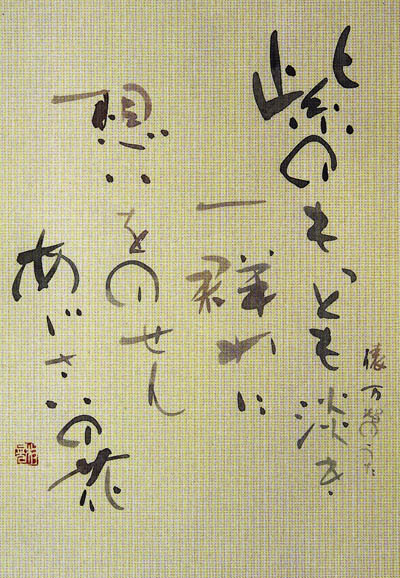 俵万智のうた
紫のもっとも淡き
一群れに
想いをのせん
あじさいの花